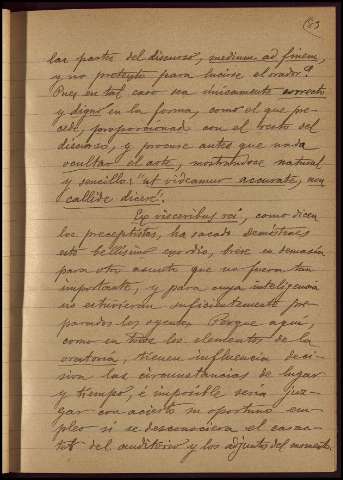 las partes del discurso, medium ad finem,
y no pretexto para lucirse el orador?
Pues en tal caso sea únicamente correcto
y digno en la forma, como el que pre-
cede, proporcionad con el resto del
discurso, y procure antes que nada
ocultar el arte, mostrándose natural
y sencillo: "ut videamur accurate, non
callide dicere".
Ex visceribus rei, como dicen
los preceptistas, ha sacado Demóstenes
este bellísimo exordio, breve en demasía
para otro asunto que no fuera tan
importante, y para cuya inteligencia
no estuvieran suficientemente pre-
parados los oyentes. Porque aquí,
como en todos los elementos de la
oratoria, tienen influencia deci-
siva las circunstancias de lugar
y tiempo, é imposible sería juz-
gar con acierto su oportuno em-
pleo si se desconociera el carac-
ter del auditorio y los adjuntos del momento